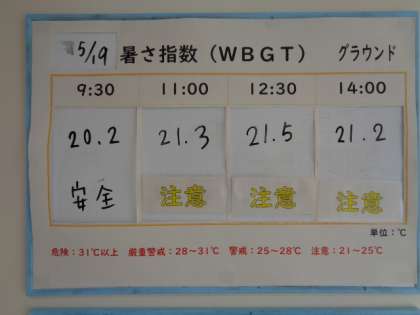 5/19 暑さ指数（WBGT） グラウンド
9:30 11:00 12:30 14:00
20.2 21.3 21.5 21.2
安全 注意 注意 注意
単位：℃
危険：31℃以上 厳重警戒：28～31℃ 警戒：25～28℃ 注意：21～25℃